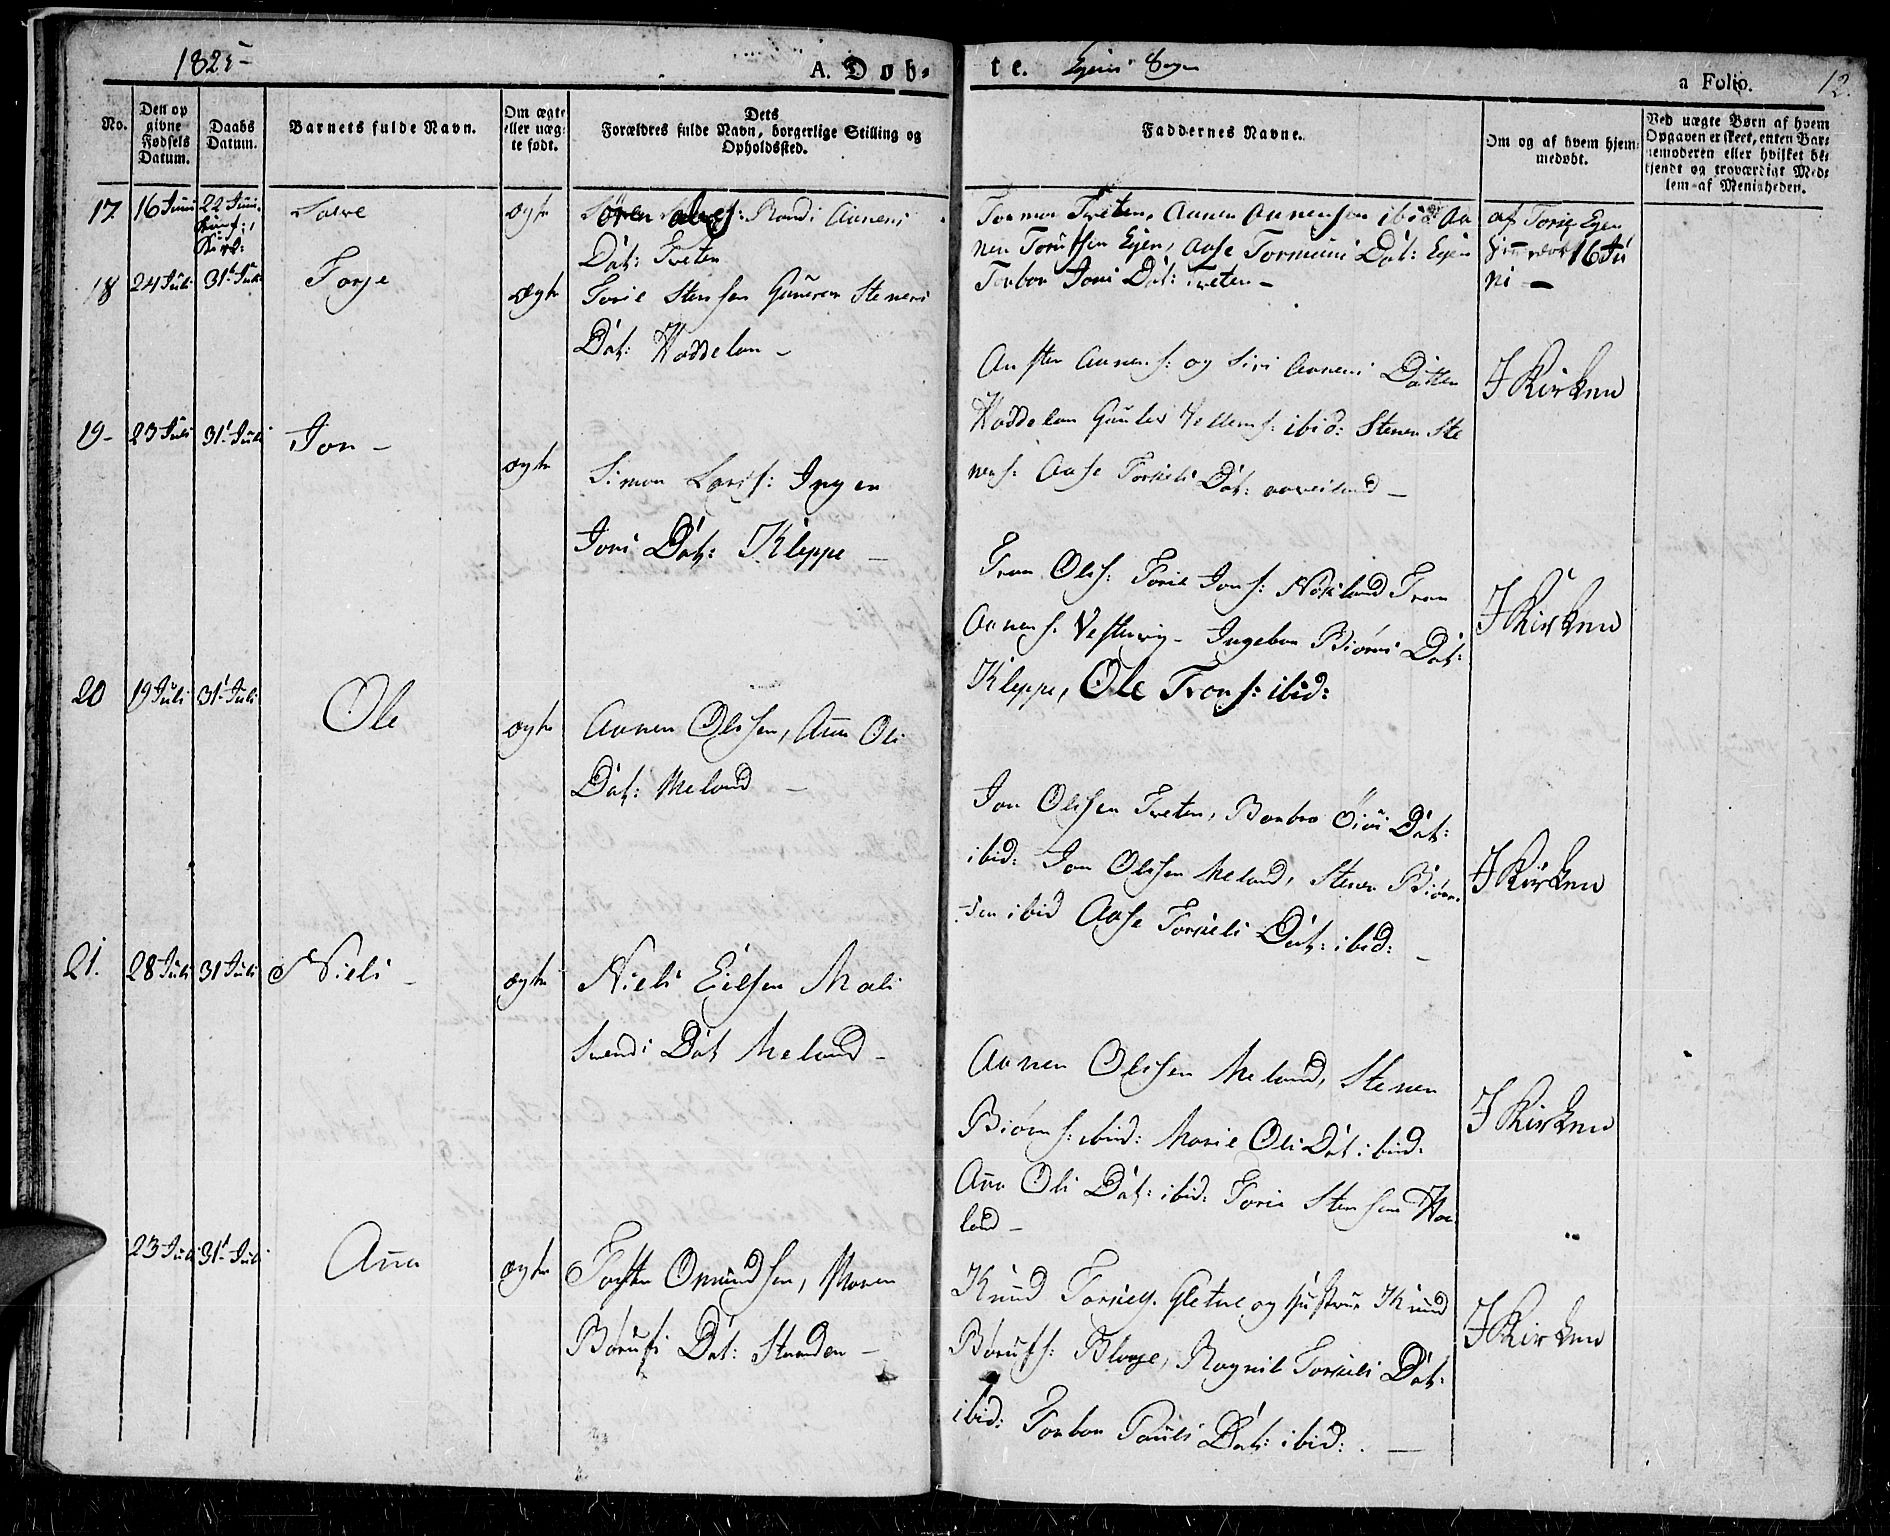 1825
A. Døb-
te. Egens Sogn
a Folio. 12.
No.
Den op
givne
Fødsels
Datum.
Daabs
Datum.
Barnets fulde Navn.
Om ægte
eller uæg-
te født.
Dets
Forældres fulde Navn, borgerlige Stilling og
Opholdssted.
Faddernes Navne.
Om og af hvem hjem-
medøbt.
Ved uægte Børn af hvem
Opgaven er skeet, enten Bar-
nemoderen eller hvilket be-
kjendt og troværdigt Med-
lem af Menigheden.
17 16 Juni 22 Juni
Salve
ægte
Randi Aanens
Dat: Tveten
Tormon Tveten, Aanen Aanensen ibid Aa
nen Torufsen Egen, Aase Tormuns Dat: Egen
Torbor Jons Dat: Tveten -
af Torje Egen
16 Ju
ni -
18 24 Juli 31 Juli
Torje
ægte
Torie Stensen Guneron Stenens
Dat: Haddelan -
Austen Aanens: og Siri Aanens Datter
Haddelan Gunler Vellems: ibid: Stenen Ste
nens: Aase Torkels Dat:
I Kirken
19- 23 Juli 31 Juli
Jon -
ægte
Simon Lars: Inger
Jons Dat: Kleppe -
Tron Ols: Torie Jons: Nokland Tron
Aanens. Vestervig - Ingebor Biørns Dat:
Kleppe, Ole Trons: ibid:
I Kirken
20 19 Juli 31 Juli
Ole
ægte
Aanen Olssen, Anne Ols
Dat: Meland -
Jon Olssen Tveten, Barbro Dat:
ibid: Jon Olssen Meland, Stenen Biørn-
sen ibid Aase Torkels Dat: ibid: -
I Kirken
21. 28 Juli 31 Juli
Niels -
ægte
Niels Eilsen Mali
Svends Dat Meland -
Aanen Olssen Meland, Stenen
Biørns: ibid: Marie Ols Dat: ibid:
Ana Ols Dat: ibid: Torie Stensen Ha
land -
I Kirken
23 Juli 31 Juli
Anna
ægte
Torsten Omundsen, Maren
Børufs Dat: Stranden -
Knud Torkels. Gletne og Hustrue Knud
Børufs: Bleige, Ragnil Torkels Dat:
ibid: Torbor Pauls Dat: ibid: . -
I Kirken